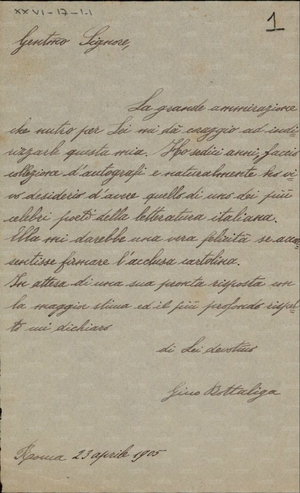 XXVI-17-1.1
1
Gentmo Signore,
La grande ammirazione
che nutro per Lei mi dà coraggio ad indi
rizzarle questa mia. Ho sedici anni, faccio
collezione d'autografi e naturalmente ho vi
vo desiderio d'avere quello di uno dei più
celebri poeti della letteratura italiana.
Ella mi darebbe una vera felicità se acco
sentisse firmare l'acclusa cartolina.
In attesa di una sua pronta risposta con
la maggior stima ed il più profondo rispet
to mi dichiaro
di Lei devotmo
Gino
Roma 23 aprile 1905